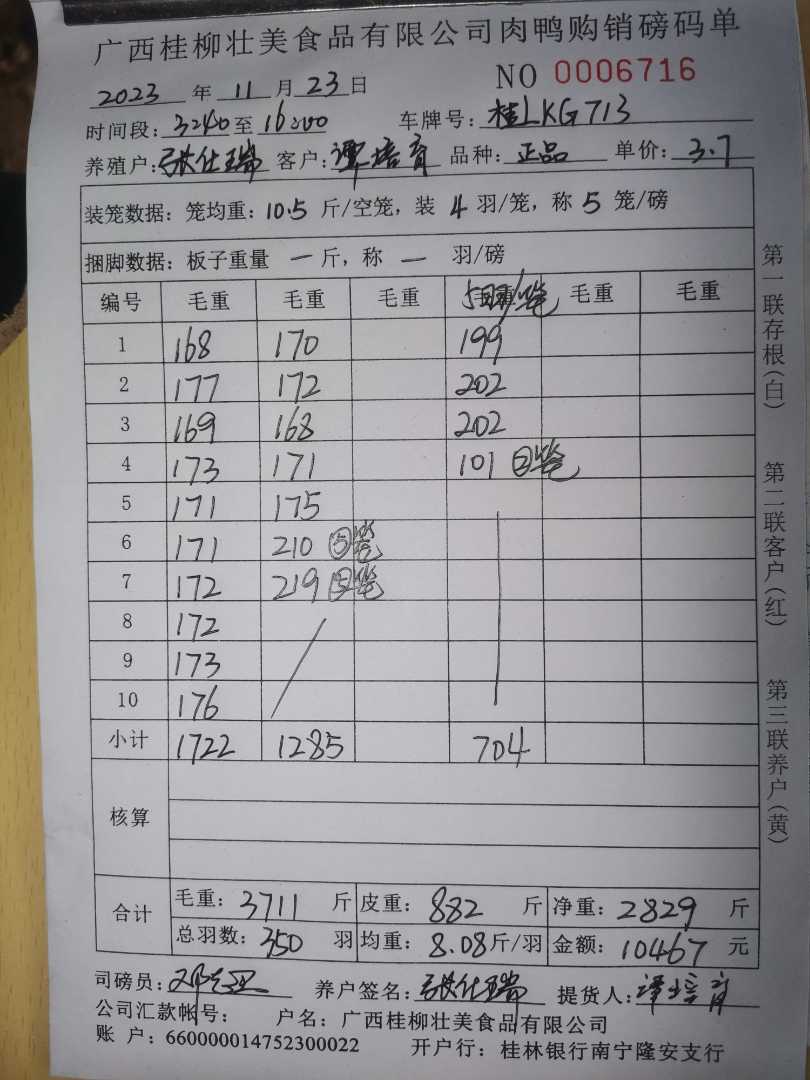 广西桂柳壮美食品有限公司肉鸭购销磅码单
2023 年 11 月 23 日 NO 0006716
时间段：3:40 至 16:00 车牌号：桂LKG713
养殖户：张仕瑞 客户：谭培育 品种：正品 单价：3.7
装笼数据：笼均重：10.5 斤/空笼，装 4 羽/笼，称 5 笼/磅
捆脚数据：板子重量 一 斤，称 一 羽/磅
编号 毛重 毛重 毛重 5 /笼 毛重 毛重
1 168 170 199
2 177 172 202
3 169 168 202
4 173 171 101 笼
5 171 175
6 171 210 ⑤笼
7 172 219 笼
8 172
9 173
10 176
小计 1722 1285 704
核算
合计 毛重：3711 斤 皮重：882 斤 净重：2829 斤
总羽数：350 羽 均重：8.08 斤/羽 金额：10467 元
司磅员： 养户签名：张仕瑞 提货人：谭培育
公司汇款帐号： 户名：广西桂柳壮美食品有限公司
账 户：660000014752300022 开户行：桂林银行南宁隆安支行
第一联存根（白）
第二联客户（红）
第三联养户（黄）